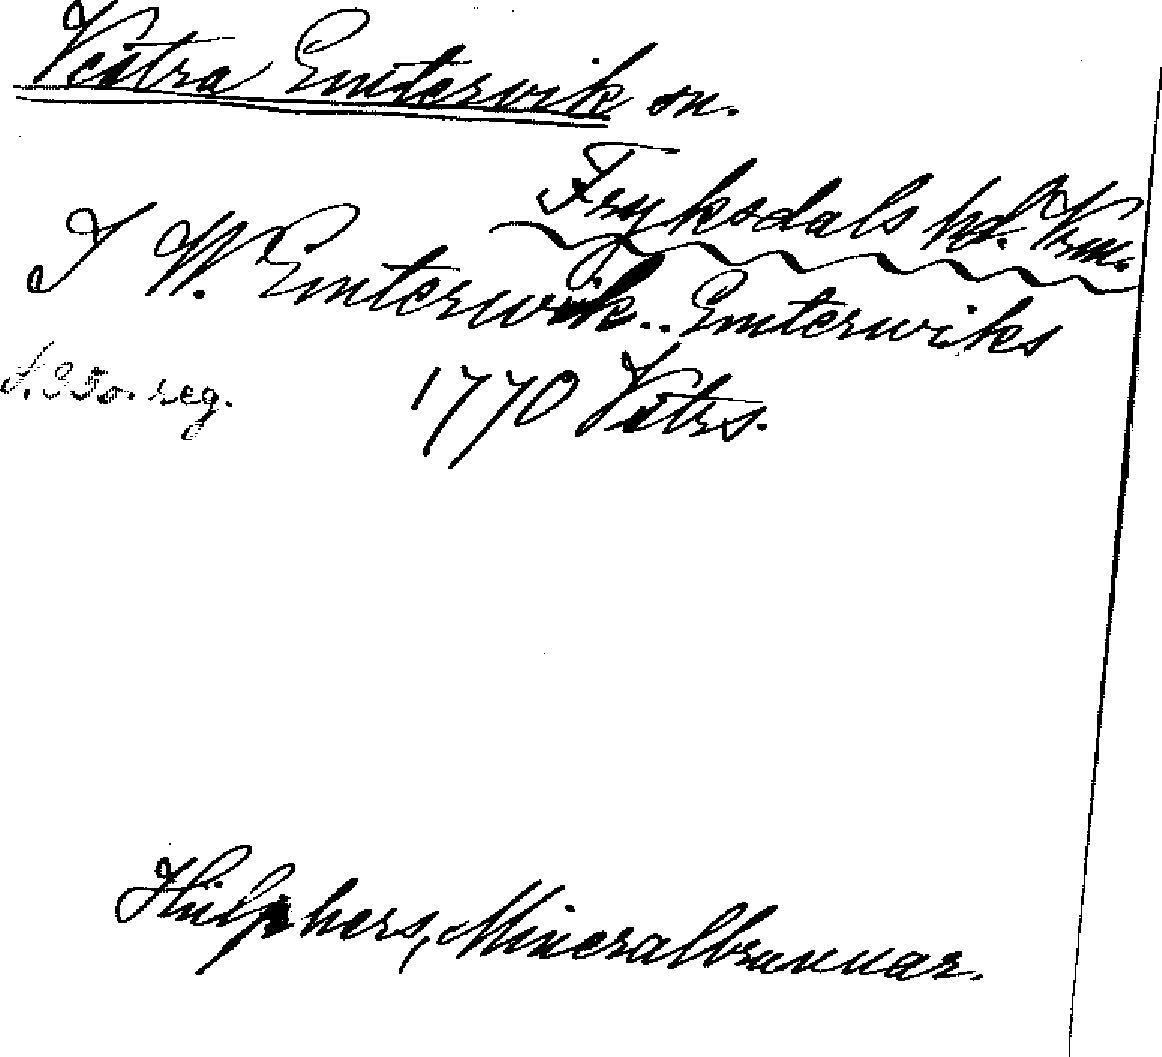 Västra Emterwik sn.
Fryksdals hd. Vrm.
I W. Emterwik.. Emterwiks
1770 Västrs.
reg.
Hülphers, Mineralbrunnar.